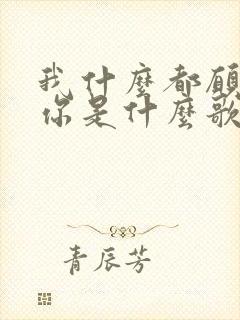 我什麼都願
你是什麼歌
青辰芳